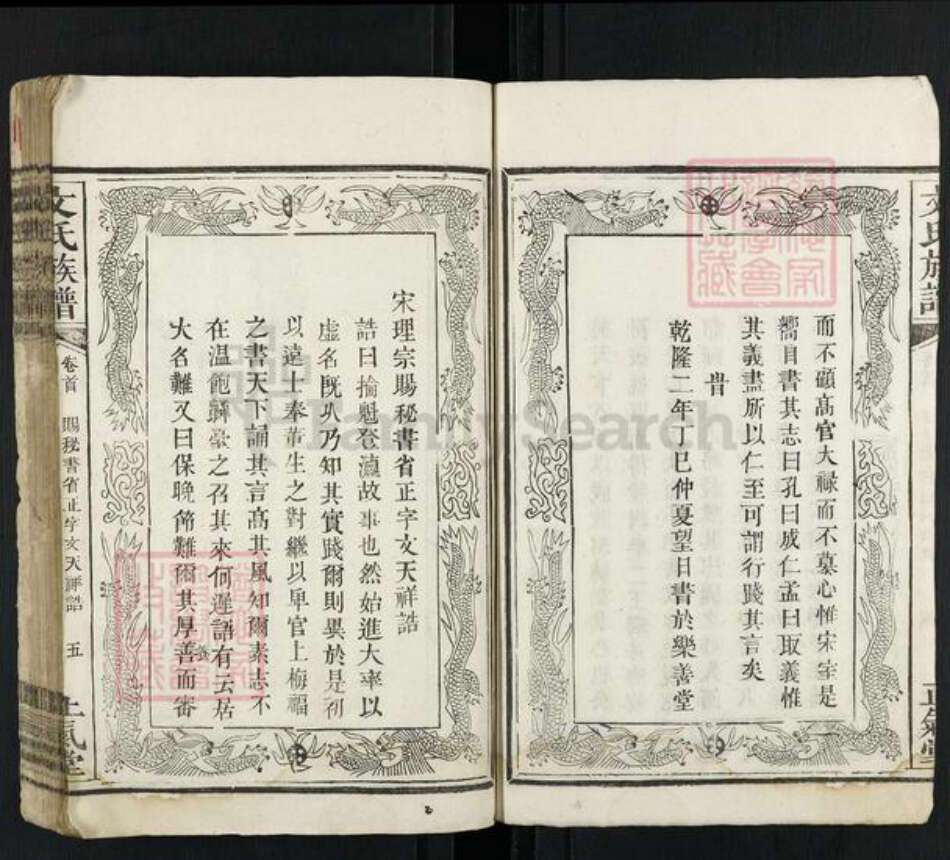 而不顧高官大祿而不慕心惟宋室是
嚮自書其志曰孔曰成仁孟曰取義惟
其義盡所以仁至可謂行踐其言矣
旹
乾隆二年丁巳仲夏望日書於樂善堂
文氏族譜
正氣堂
宋理宗賜秘書省正字文天祥誥
誥曰掄魁登瀛故事也然始進大率以
虛名旣乆乃知其實踐爾則異於是初
以遠士奉董生之對繼以卑官上梅福
之書天下誦其言高其風知爾素志不
在温飽歸豪之召其來何遲語有云居
大名難又曰保晚節難爾其厚善而審
文氏族譜
卷首
賜秘書省正字文天祥誥
五
正氣堂
FamilySearch